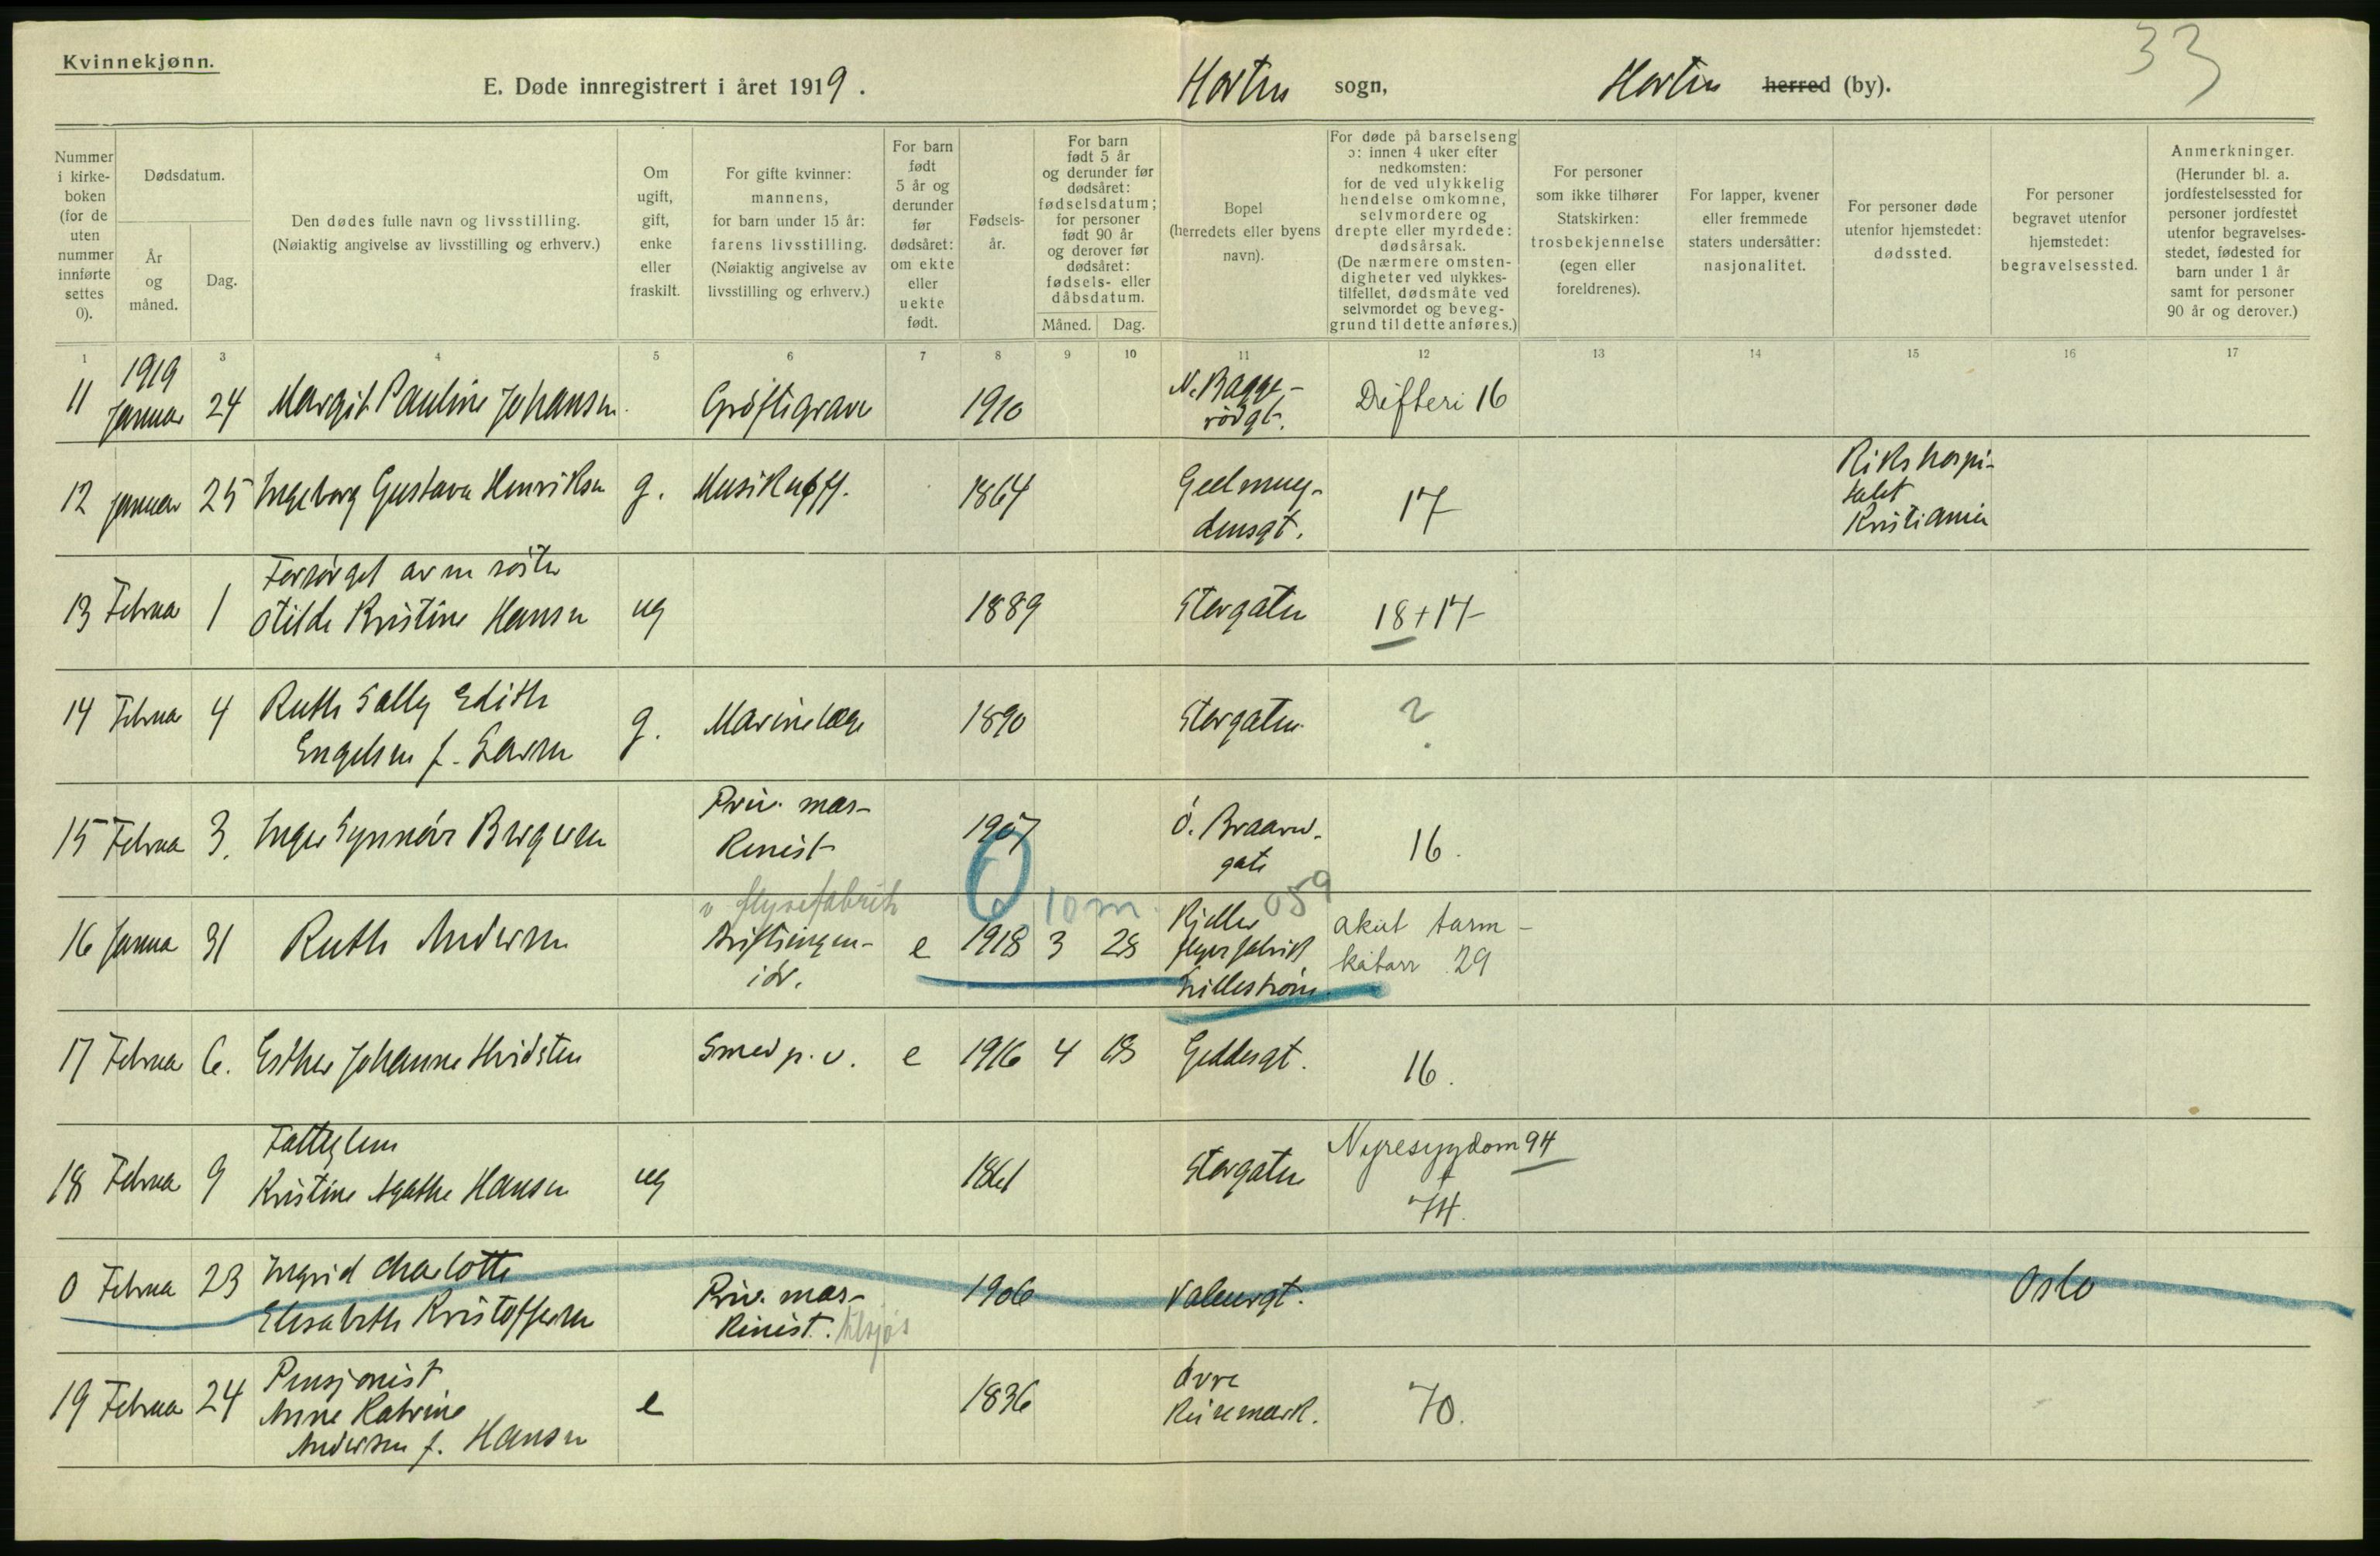 33
Kvinnekjønn.
E. Døde innregistrert i året 1919.
Horten sogn,
Horten herred (by).
Nummer i kirkeboken (for de uten nummer innførte settes 0).
Dødsdatum.
År og måned.
Dag.
Den dødes fulle navn og livsstilling.
(Nøiaktig angivelse av livsstilling og erhverv.)
Om ugift, gift, enke eller fraskilt.
For gifte kvinner: mannens, for barn under 15 år: farens livsstilling. (Nøiaktig angivelse av livsstilling og erhverv.)
For barn født 5 år og derunder før dødsåret: om ekte eller uekte født.
Fødselsår.
For barn født 5 år og derunder før dødsåret: fødselsdatum; for personer født 90 år og derover før dødsåret: fødsels- eller dåbsdatum.
Måned.
Dag.
Bopel (herredets eller byens navn).
For døde på barselseng ɔ: innen 4 uker efter nedkomsten: for de ved ulykkelig hendelse omkomne, selvmordere og drepte eller myrdede: dødsårsak. (De nærmere omstendigheter ved ulykkestilfellet, dødsmåte ved selvmordet og beveggrund til dette anføres.)
For personer som ikke tilhører Statskirken: trosbekjennelse (egen eller foreldrenes).
For lapper, kvener eller fremmede staters undersåtter: nasjonalitet.
For personer døde utenfor hjemstedet: dødssted.
For personer begravet utenfor hjemstedet: begravelsessted.
Anmerkninger. (Herunder bl. a. jordfestelsessted for personer jordfestet utenfor begravelsesstedet, fødested for barn under 1 år samt for personer 90 år og derover.)
1 3 4 5 6 7 8 9 10 11 12 13 14 15 16 17
1919
11 Januar 24 Margit Pauline Johansen Grøftegraver 1910 N. Baggerødgt. Difteri 16
12 Januar 25 Ingeborg Gustava Henriksen g. 1864 Geelmuydensgt. 17 Rikshospitalet Kristiania
Forsørget av en søster
13 Februar 1 Otilde Kristine Hansen ug 1889 Storgaten 18+17
14 Februar 4 Ruth Sally Edith
Engelsen f. Larsen g. Marinelæge 1890 Storgaten ?
15 Februar 3. Inger Synnöve Bergersen Priv. maskinist 1907 Ö. Braarudgate 16.
v flyvefabrik 6 10 m. 059
16 Januar 31 Ruth Andersen Driftsingeniör. e 1918 3 28 Kjeller flyvefabrikk Lillestrøm. akut tarmkatarr 29
17 Februar 6. Esther Johanne Hvidsten Smed p. v. e 1916 4 18 Geddesgt. 16.
Fattiglem
18 Februar 9 Kristine Agathe Hansen ug 1861 Storgaten Nyresygdom 94
+
74.
0 Februar 23 Ingrid Charlotte
Elisabeth Kristoffersen Priv. maskinist. tilsjøs 1906 Valeurgt. Oslo
Pensjonist
19 Februar 24 Anne Katrine
Andersen f. Hansen e 1836 övre Keisemark. 70.